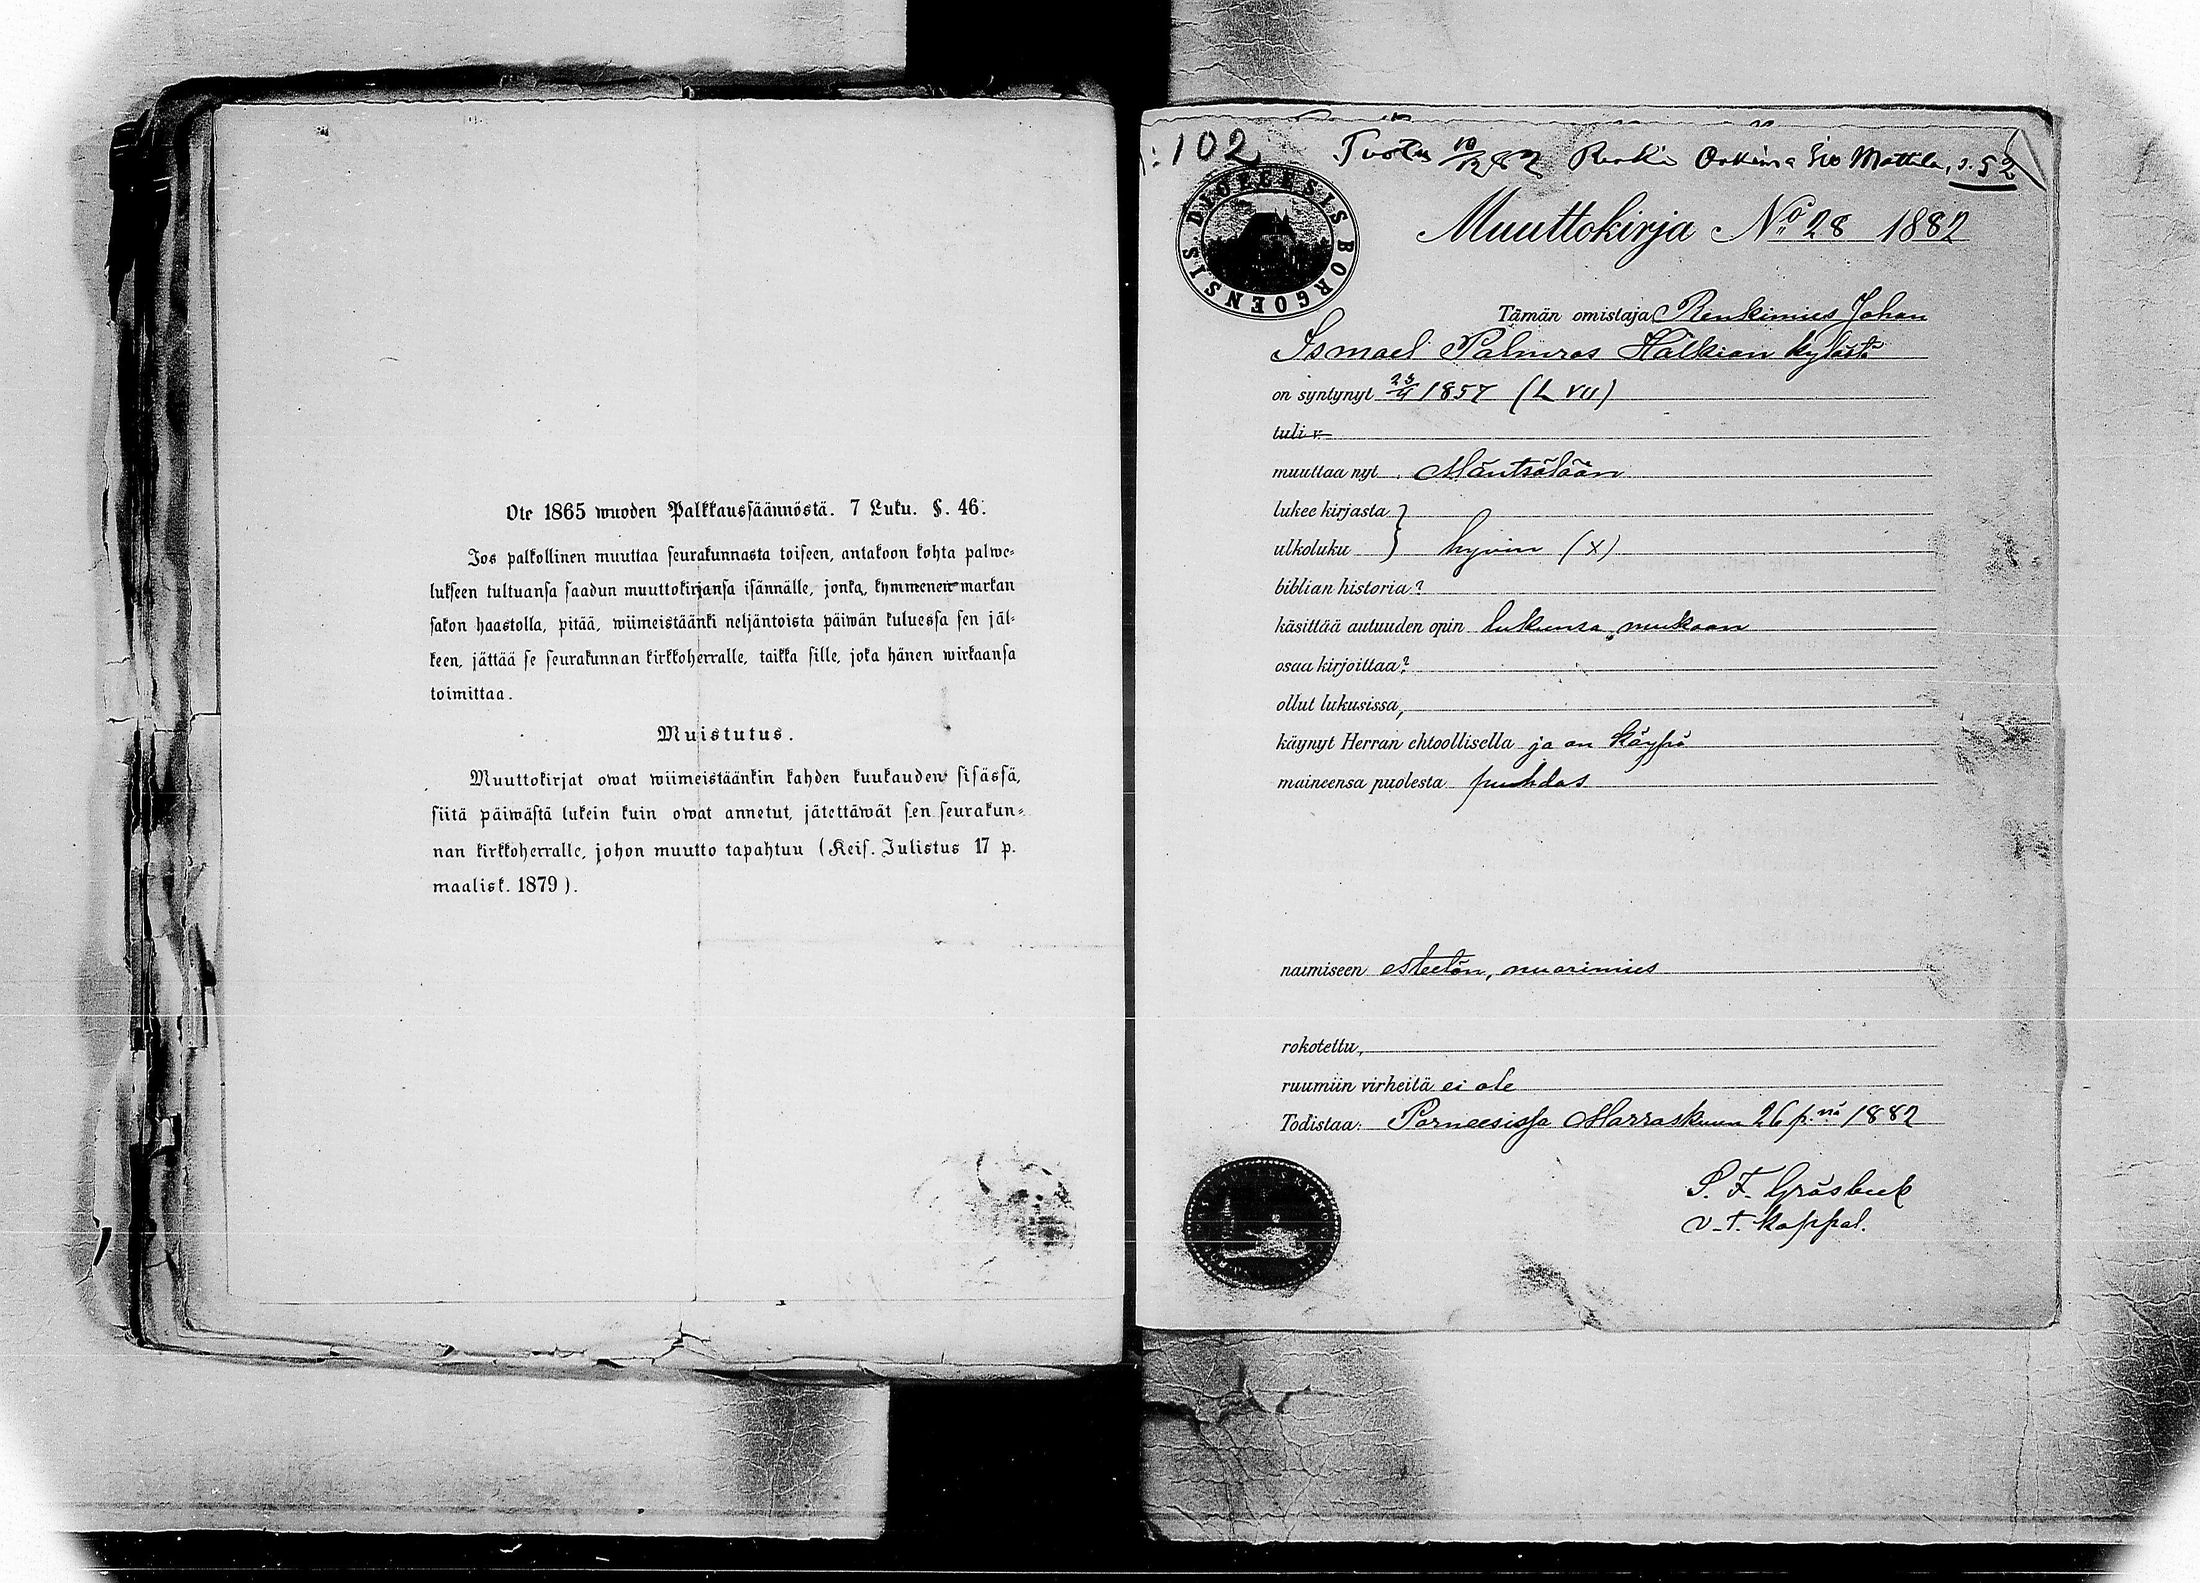 Ote 1865 wuoden Palkkaussäännöstä. 7 Luku. §. 46.
Jos palkollinen muuttaa seurakunnasta toiseen, antakoon kohta palwe-
lukseen tultuansa saadun muuttokirjansa isännälle, jonka, kymmenen markan
sakon haastolla, pitää, wiimeistäänki neljäntoista päiwän kuluessa sen jäl-
keen, jättää se seurakunnan kirkkoherralle, taikka sille, joka hänen wirkaansa
toimittaa.
Muistutus.
Muuttokirjat owat wiimeistäänkin kahden kuukauden sisässä,
siitä päiwästä lukein kuin owat annetut, jätettäwät sen seurakun-
nan kirkkoherralle, johon muutto tapahtuu (Keis. Julistus 17 p.
maalisk. 1879).
:102
Tuotu 10/12 82 Renki Mattila, s. 52
DIOECESIS BORGOENSIS
Muuttokirja No 28 1882
Tämän omistaja Renkimies Johan
Ismael Palmros Hälkian kylästä
on syntynyt 23/4 1857 (L VII)
tuli v.
muuttaa nyt Mäntsälään
lukee kirjasta
ulkoluku } hyvin (X)
biblian historia?
käsittää autuuden opin lukunsa mukaan
osaa kirjoittaa?
ollut lukusissa,
käynyt Herran ehtoollisella ja on käypä
maineensa puolesta puhdas
naimiseen esteetön, nuorimies
rokotettu,
ruumiin virheitä ei ole
Todistaa: Porneesissa Marraskuun 26 p:nä 1882
S. F. Gräsbeck
v. t. kappal.